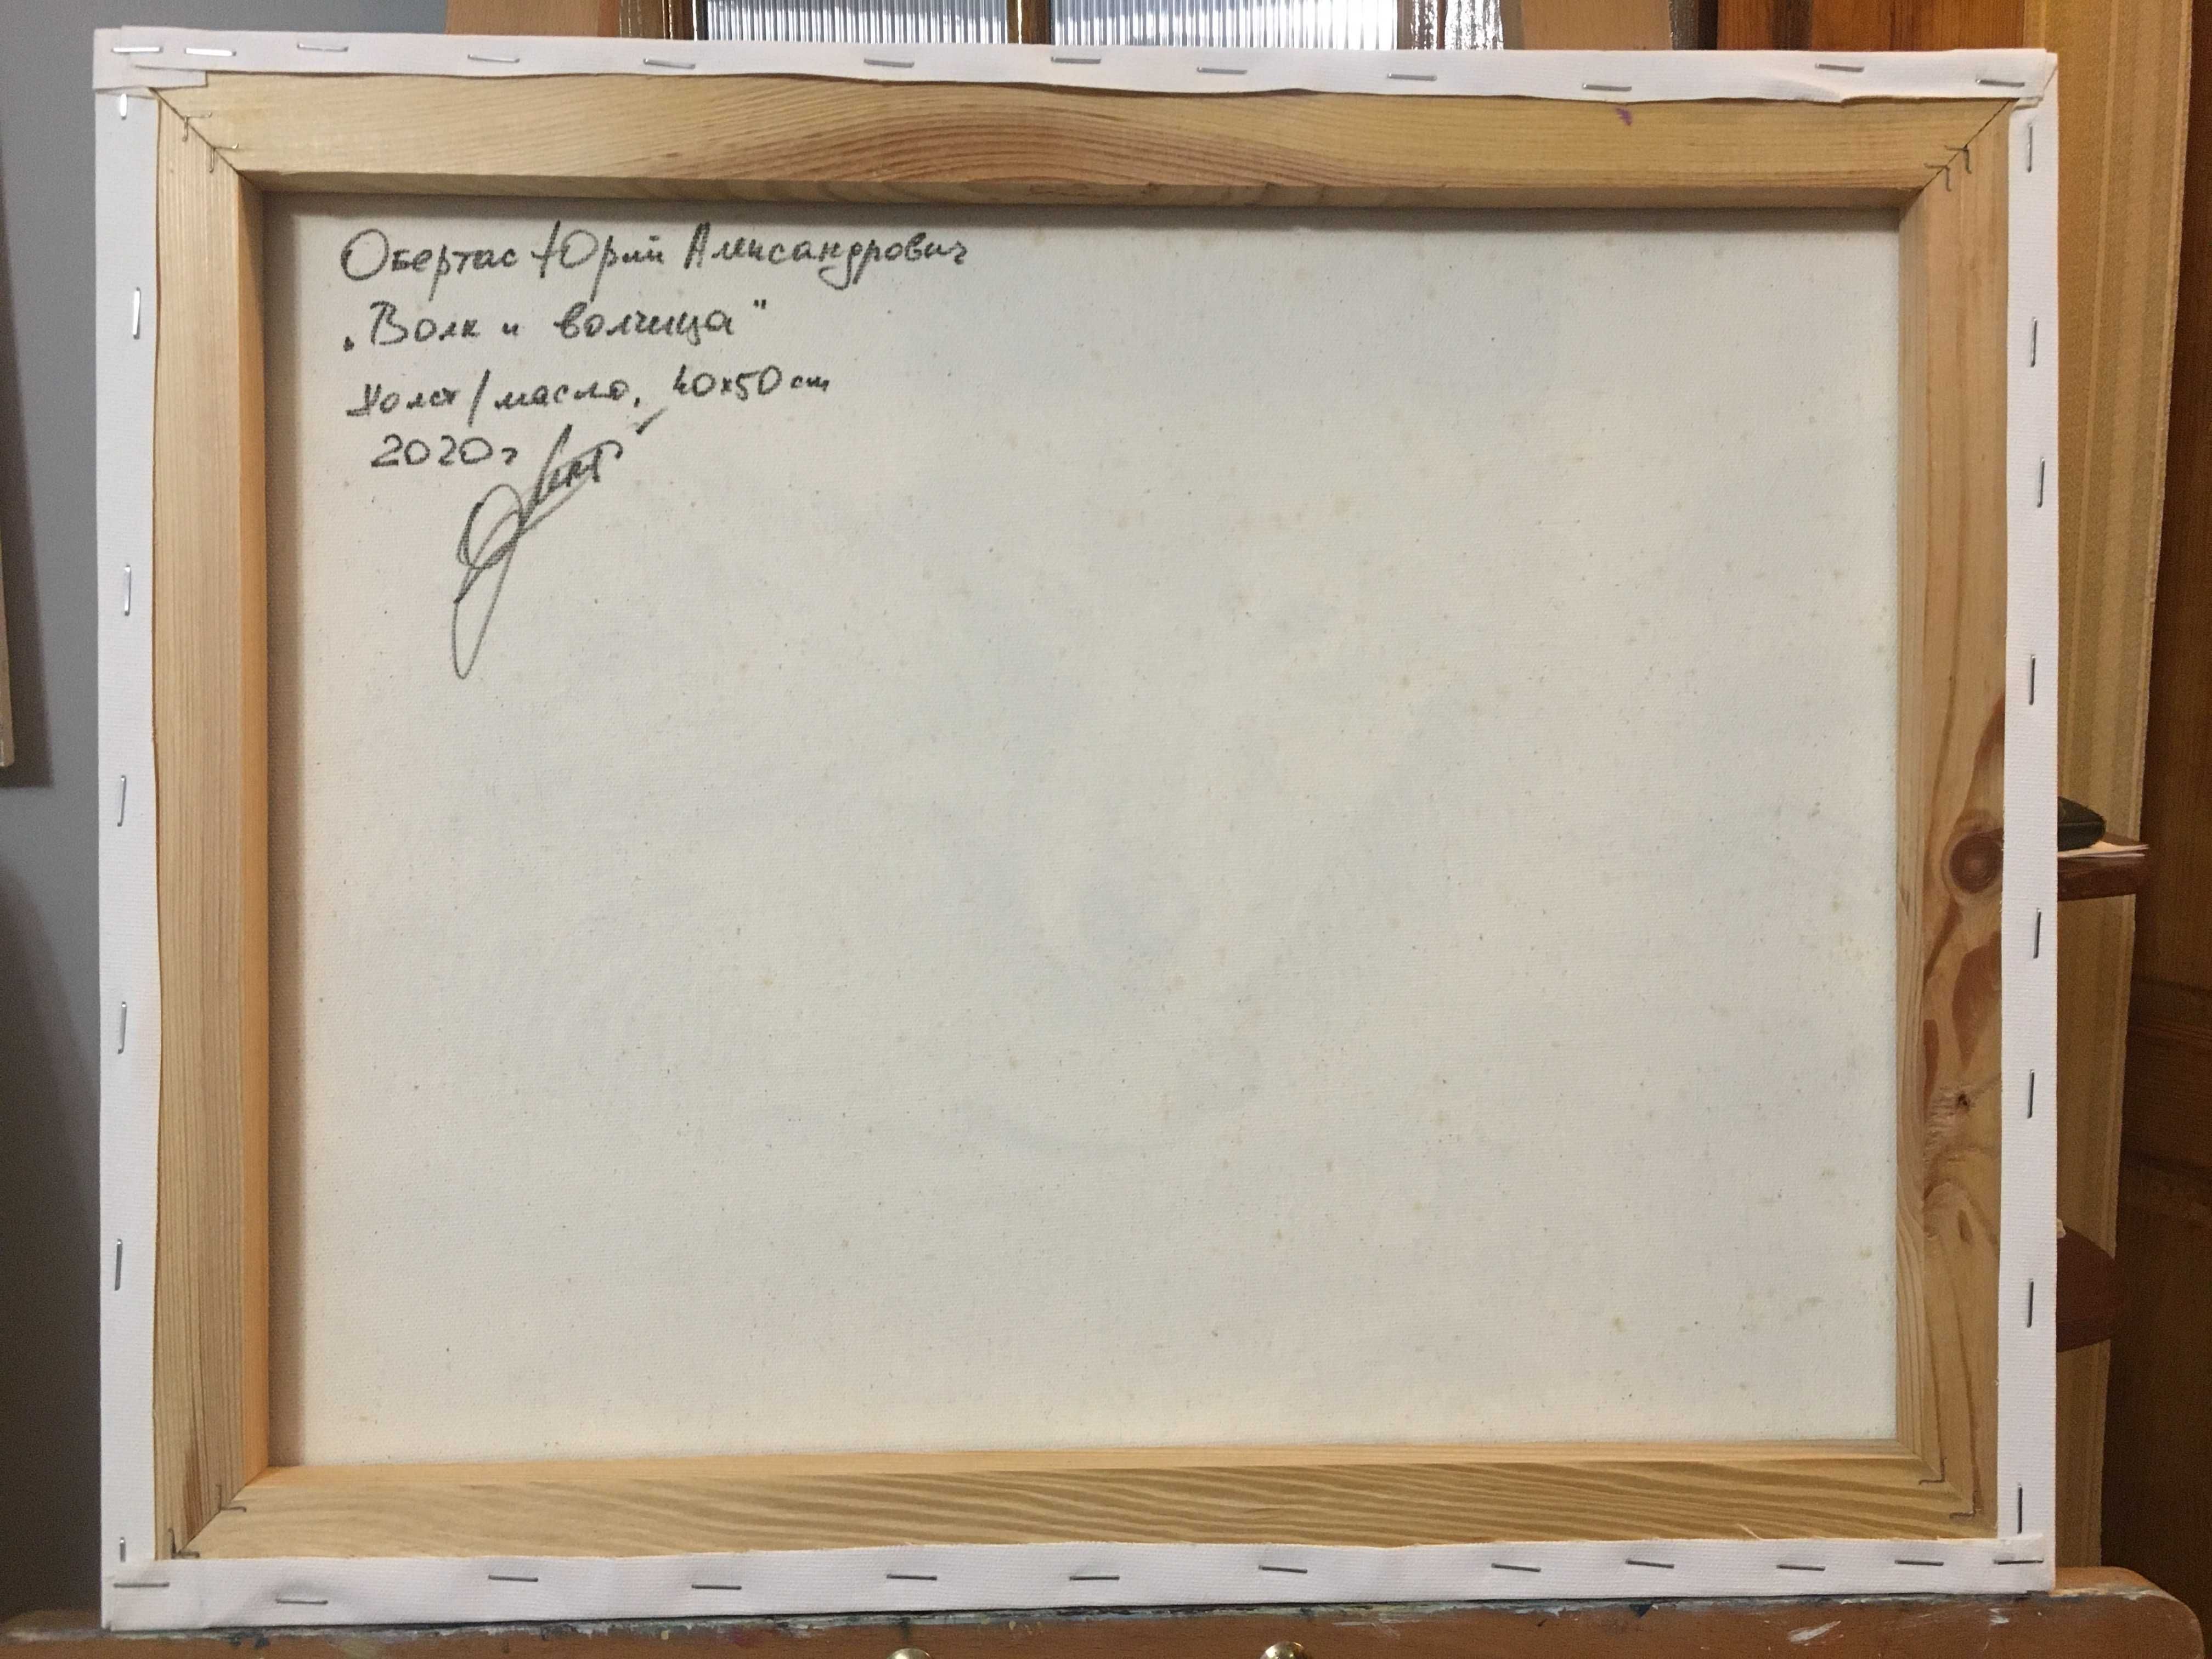 Обертас Юрий Александрович
„Волк и волчица"
Холст/масло, 40х50 см
2020г